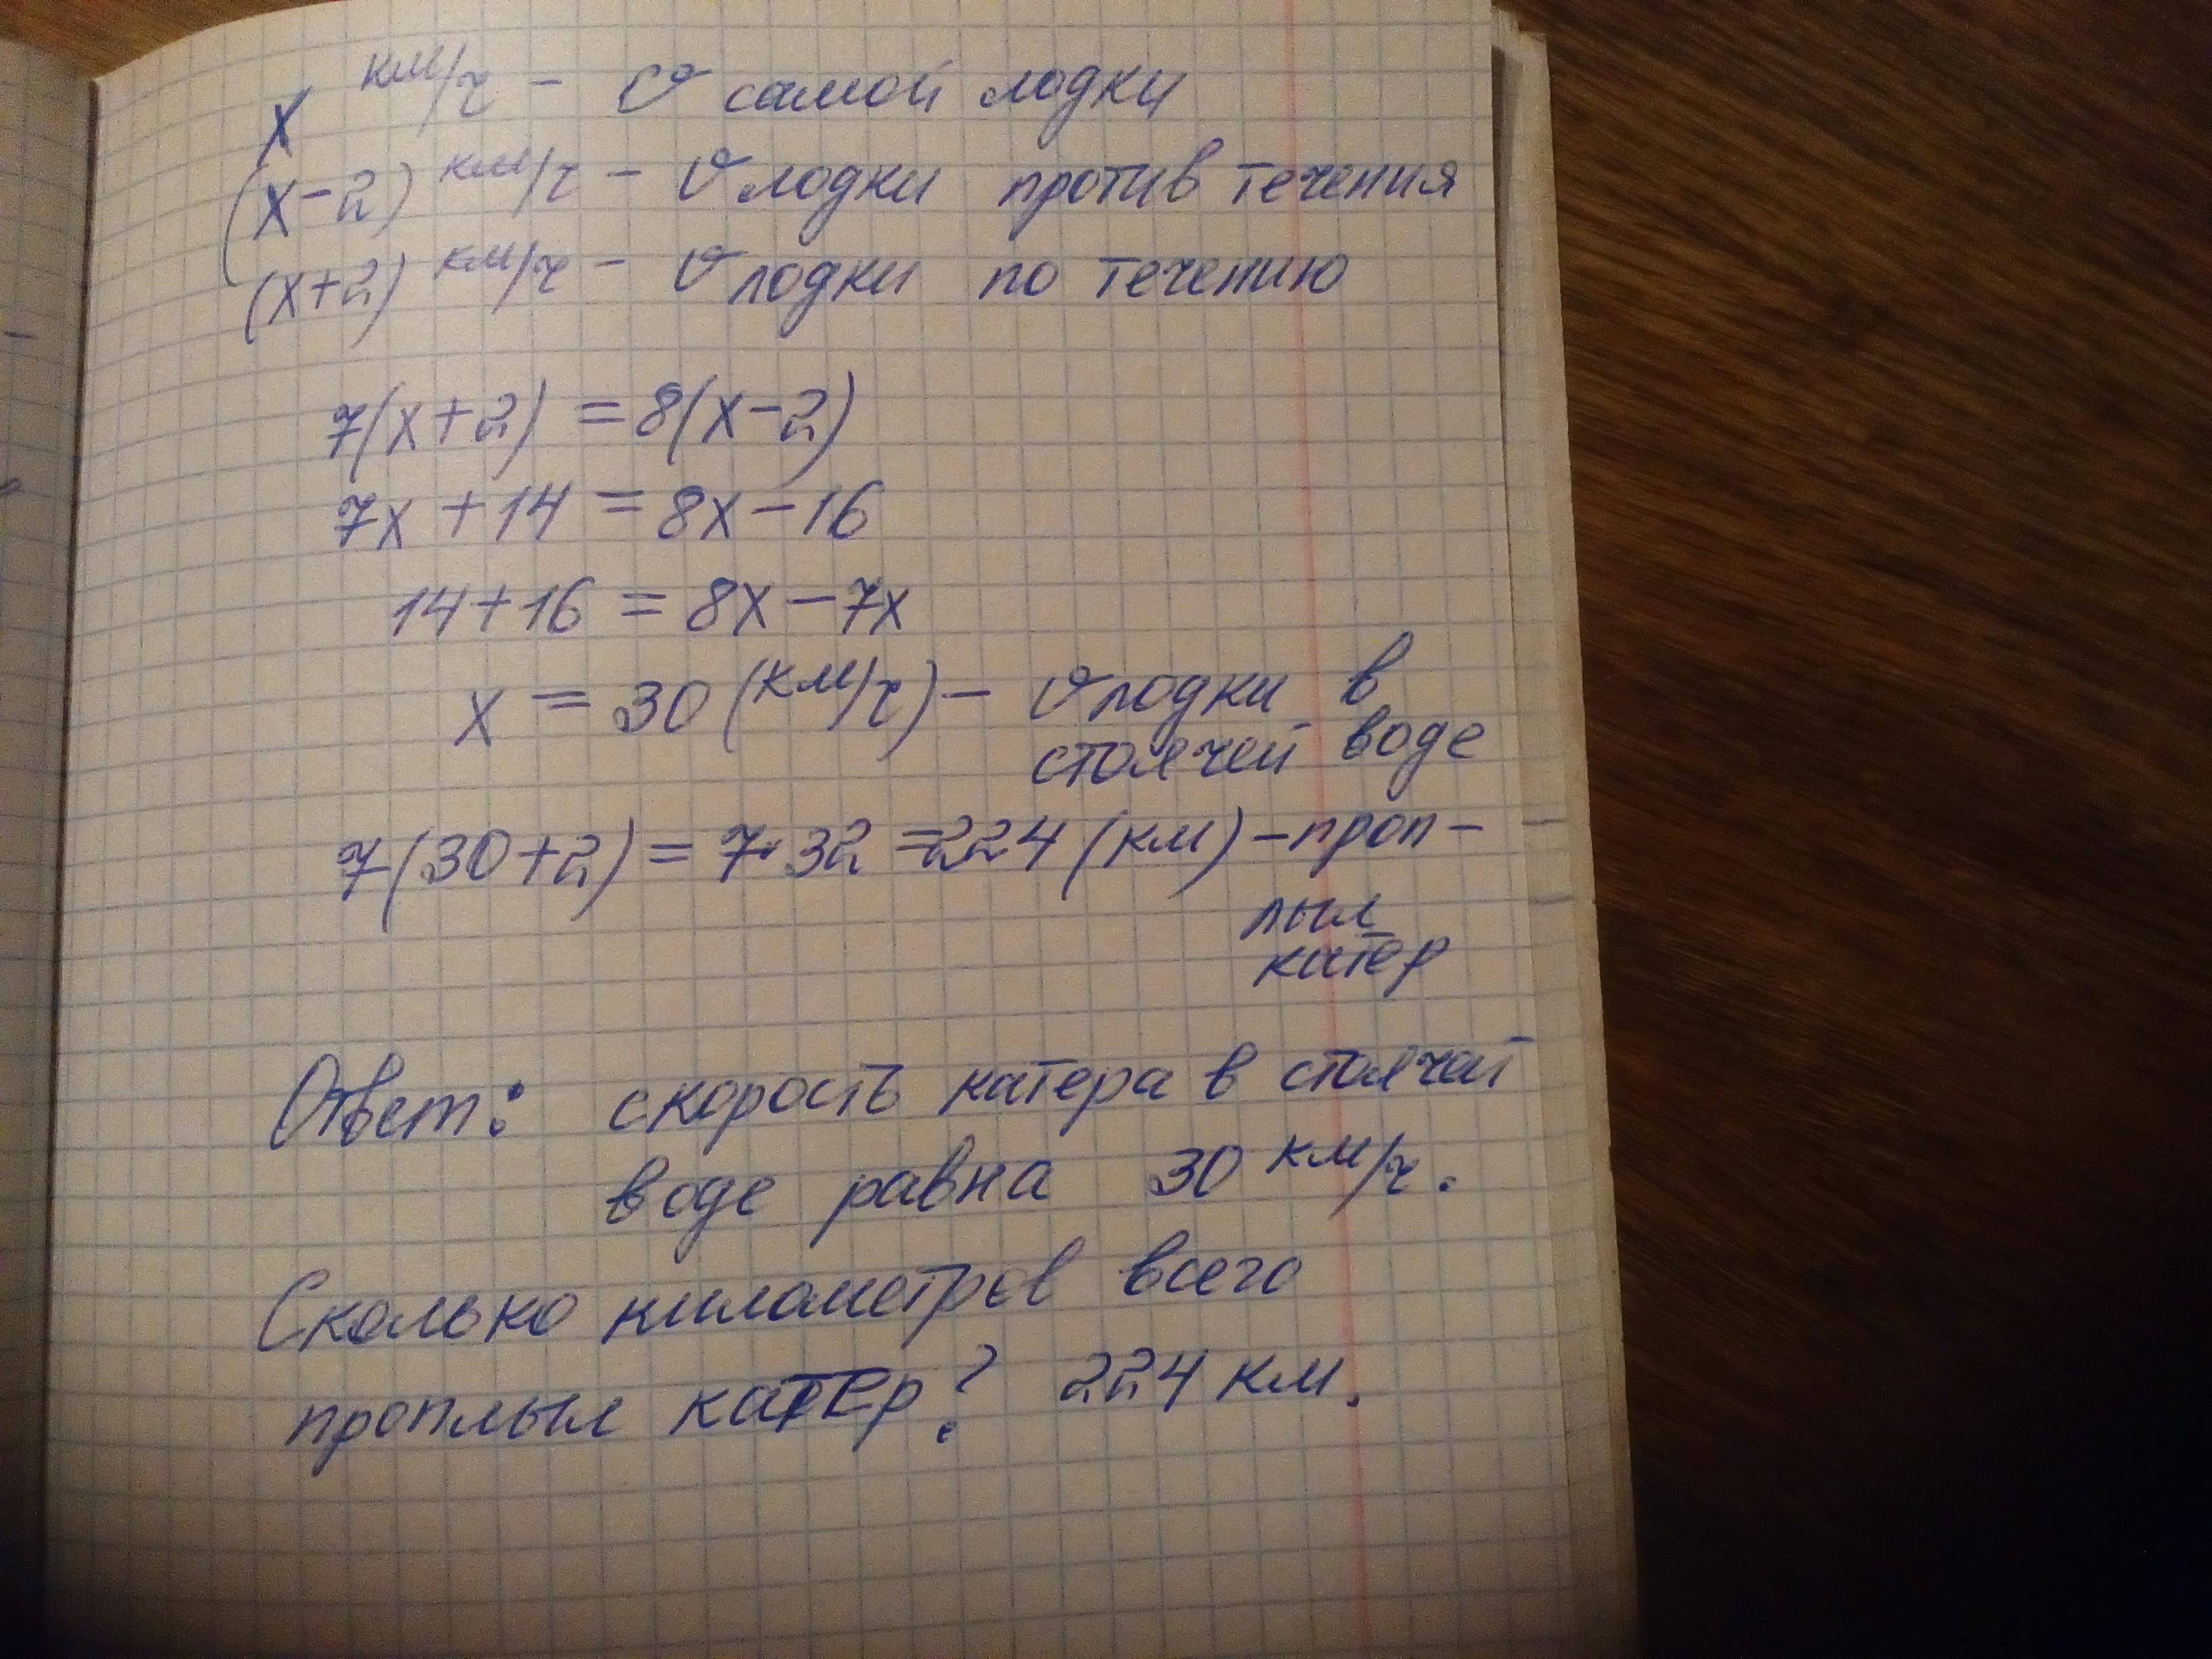 x км/ч – v самой лодки
(x-2) км/ч – v лодки против течения
(x+2) км/ч – v лодки по течению
7(x+2) = 8(x-2)
7x + 14 = 8x - 16
14+16 = 8x - 7x
x = 30 (км/ч) – v лодки в
стоячей воде
7(30+2) = 7·32 = 224 (км) – проп-
лыл
катер
Ответ: скорость катера в стоячай
воде равна 30 км/ч.
Сколько километров всего
проплыл катер? 224 км.